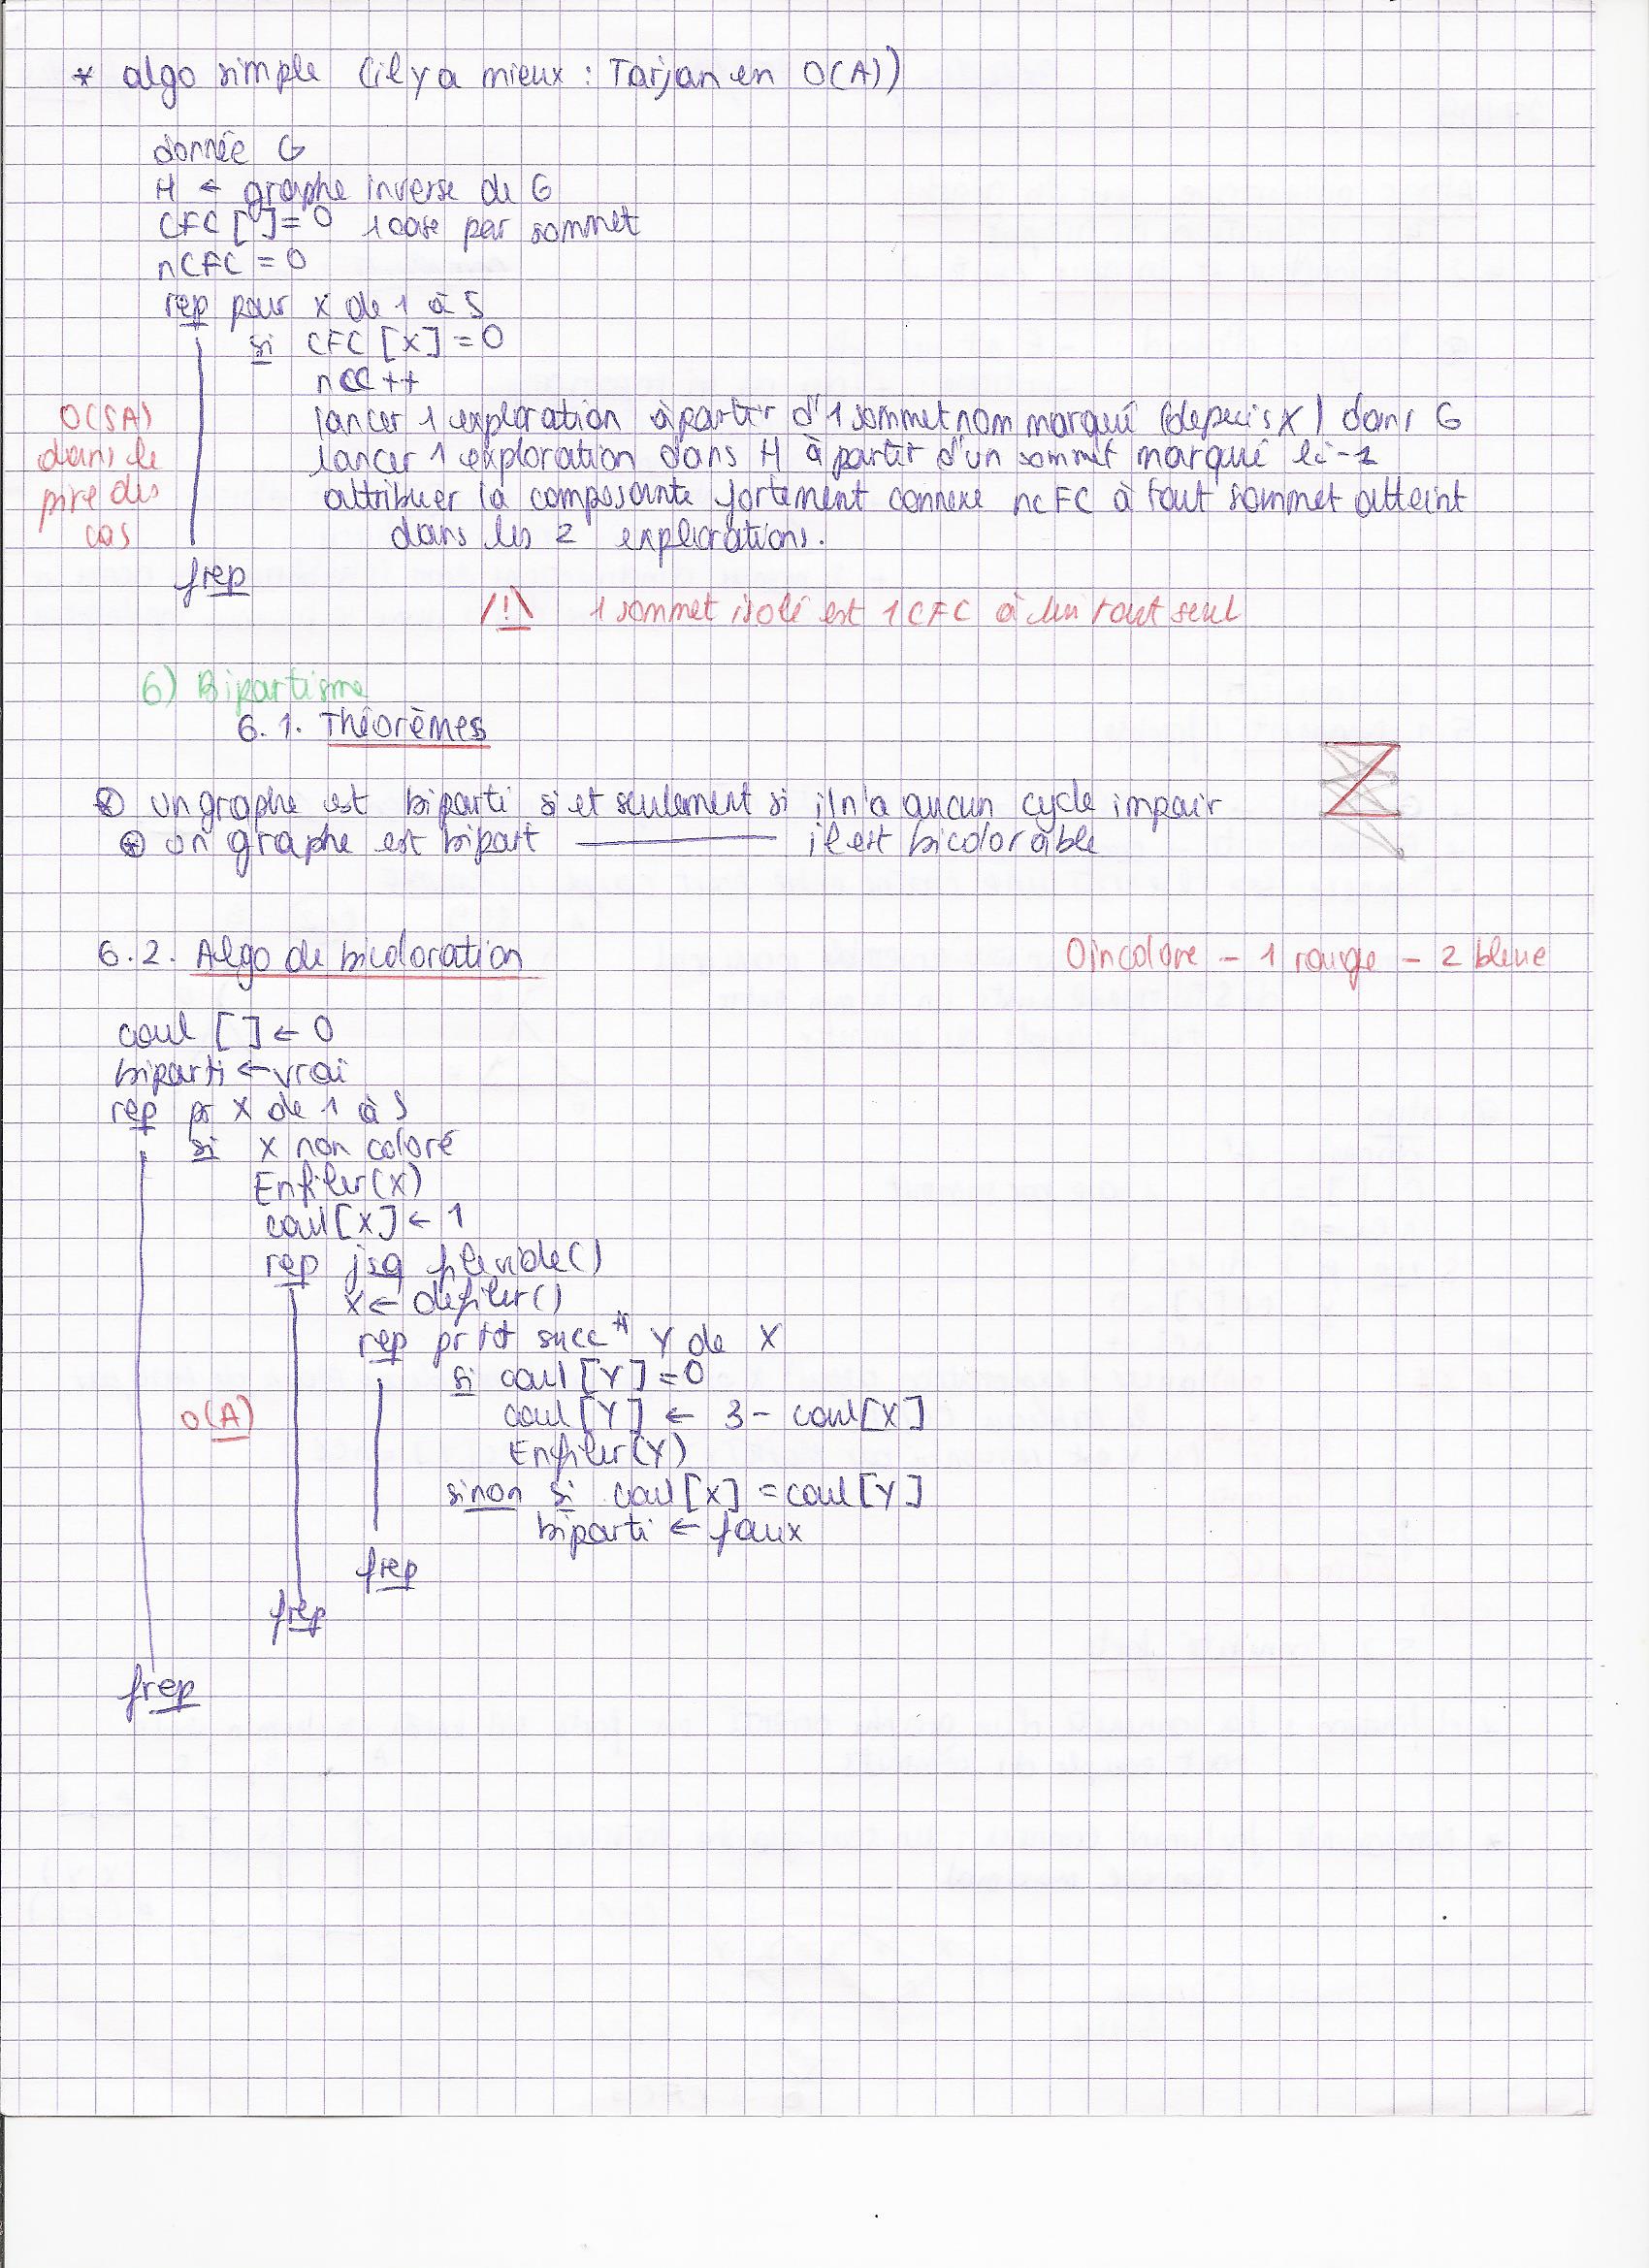 * algo simple (il y a mieux : Tarjan en O(A))
donnée G
H ← graphe inverse de G
CFC [ ] = 0 1 case par sommet
nCFC = 0
rep pour x de 1 à S
si CFC [X] = 0
nCC ++
O(SA) dans le pire des cas
lancer 1 exploration à partir d'1 sommet non marqué (depuis X) dans G
lancer 1 exploration dans H à partir d'un sommet marqué
attribuer la composante fortement connexe nCFC à tout sommet atteint
dans les 2 explorations.
frep
/!\ 1 sommet isolé est 1 CFC à lui tout seul
6) Bipartisme
6.1. Théorèmes
* un graphe est biparti si et seulement si il n'a aucun cycle impair
* un graphe est bipart ———— il est bicolorable
6.2. Algo de bicoloration
0 incolore - 1 rouge - 2 bleue
coul [ ] ← 0
biparti ← vrai
rep pr X de 1 à S
si x non coloré
Enfiler(X)
coul[X] ← 1
rep jsq filevide()
X ← defiler()
rep pr tt succ Y de X
si coul[Y] = 0
O(A)
coul[Y] ← 3 - coul[X]
Enfiler(Y)
sinon si coul[X] = coul[Y]
biparti ← faux
frep
frep
frep